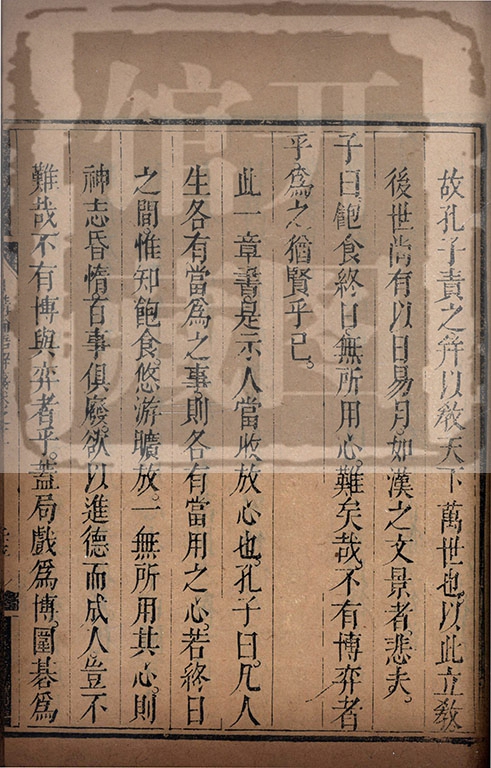 故孔子責之并以敎天下萬世也。以此立敎
後世尚有以日易月。如漢之文景者。悲夫。
子曰。飽食終日。無所用心。難矣哉。不有博弈者
乎。爲之猶賢乎已。
此一章書。是示人當收放心也。孔子曰。凡人
生各有當爲之事。則各有當用之心。若終日
之間。惟知飽食。悠游曠放。一無所用其心。則
神志昏惰。百事俱廢。欲以進德而成人。豈不
難哉。不有博與弈者乎。蓋局戲爲博。圍碁爲